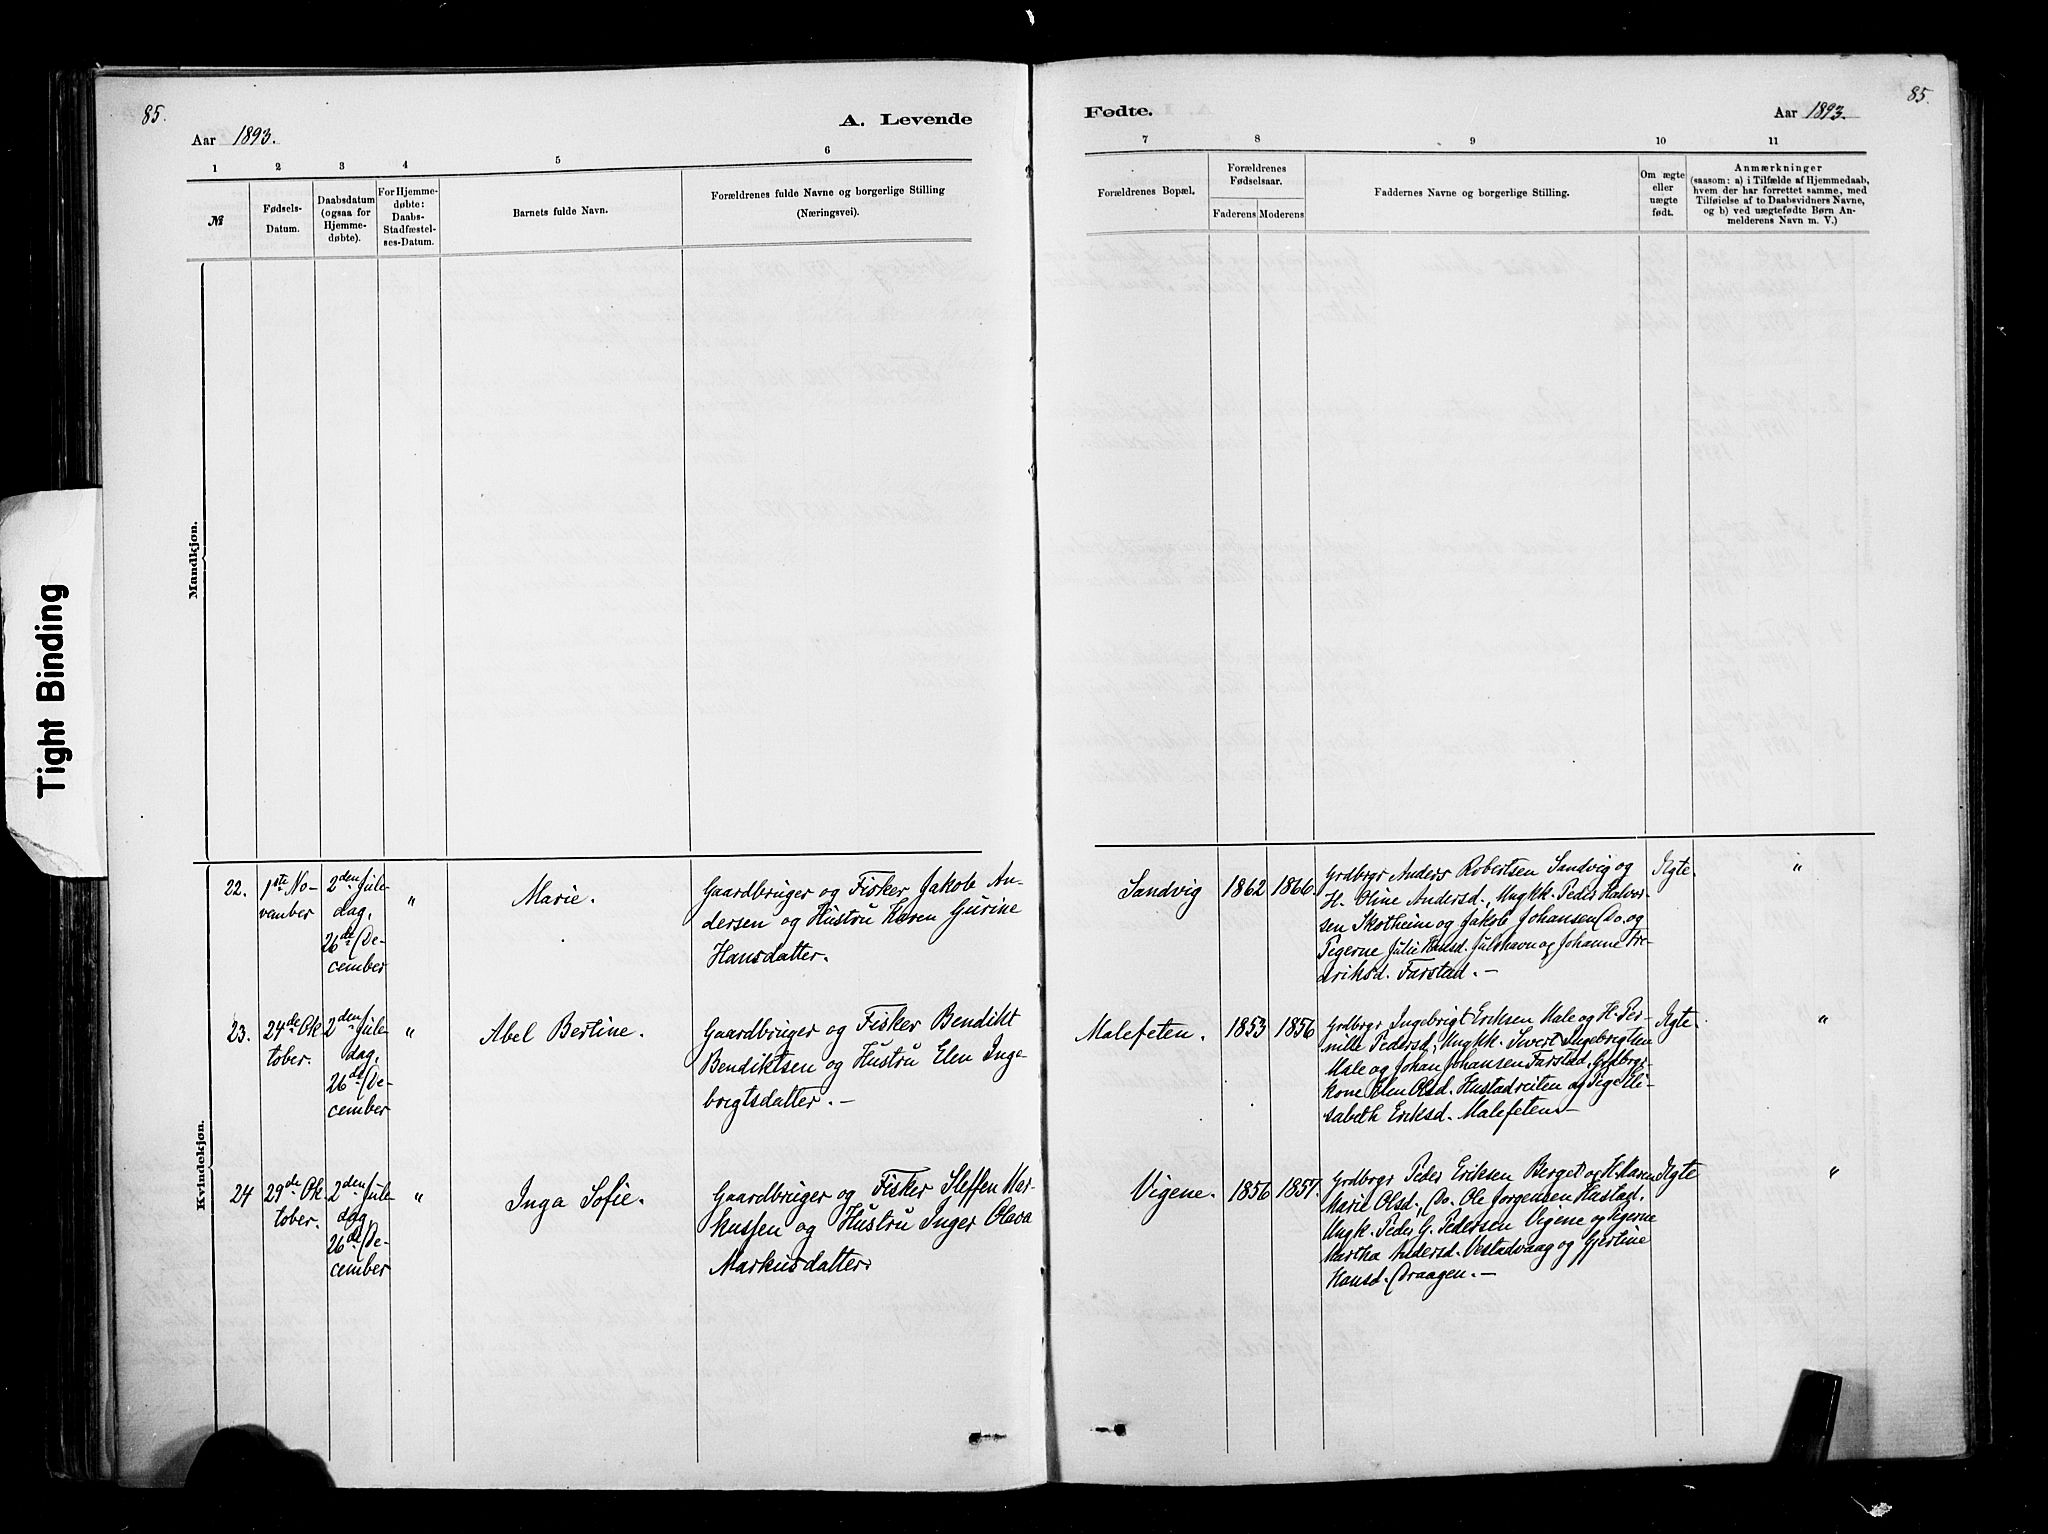 85.
A. Levende
Aar 1893.
1 2 3 4 5 6
№
Fødsels-
Datum.
Daabsdatum
(ogsaa for
Hjemme-
døbte).
For Hjemme-
døbte:
Daabs-
Stadfæstel-
ses-Datum.
Barnets fulde Navn.
Forældrenes fulde Navne og borgerlige Stilling
(Næringsvei).
Mandkjøn.
Kvindekjøn.
Tight Binding
22.
1ste No-
vember
2den Jule-
dag,
26de De-
cember
"
Marie.
Gaardbruger og Fisker Jakob An-
dersen og Hustru Karen Gurine
Hansdatter.
23.
24de Ok
tober.
2den Jule
dag,
26de De-
cember
"
Abel Bertine.
Gaardbruger og Fisker Bendikt
Bendiktsen og Hustru Elen Inge-
brigtsdatter. —
24
29de Ok-
tober.
2den Jule
dag,
26de De-
cember
"
Inga Sofie.
Gaardbruger og Fisker Steffen Mar-
kussen og Hustru Inger Olava
Markusdatter.
Fødte.
Aar 1893.
85.
7 8 9 10 11
Forældrenes Bopæl.
Forældrenes
Fødselsaar.
Faderens Moderens
Faddernes Navne og borgerlige Stilling.
Om ægte
eller
uægte
født.
Anmærkninger
(saasom: a) i Tilfælde af Hjemmedaab,
hvem der har forrettet samme, med
Tilføielse af to Daabsvidners Navne,
og b) ved uægtefødte Børn An-
melderens Navn m. V.)
Sandvig
1862
1866
Grdbrgr Anders Robertsen Sandvig og
H. Oline Andersd., Ungkk. Peder Halvor-
sen Skotheim og Jakob Johansen Do. og
Pigerne Julie Hansd. Julshavn og Johanne Fre-
driksd. Farstad. —
Ægte.
"
Malefeten.
1853
1856
Grdbrgr Ingebrigt Eriksen Male og H. Per-
nille Pedersd., Ungkk. Sivert Ingebrigtsen
Male og Johan Johansen Farstad, Grdbrgr-
kone Elen Olsd. Hustadveiten og Pige Eli-
sabeth Eriksd. Malefeten —
Ægte.
"
Vigene.
1856
1857.
Grdbrgr Peder Eriksen Berget og H. Maren
Marie Olsd., Do. Ole Jørgensen Hustad.
Ungk. Peder G. Pedersen Vigene og Pigerne
Martha Andersd. Vestadvaag og Gjertine
Hansd. Draagen. —
Ægte
"